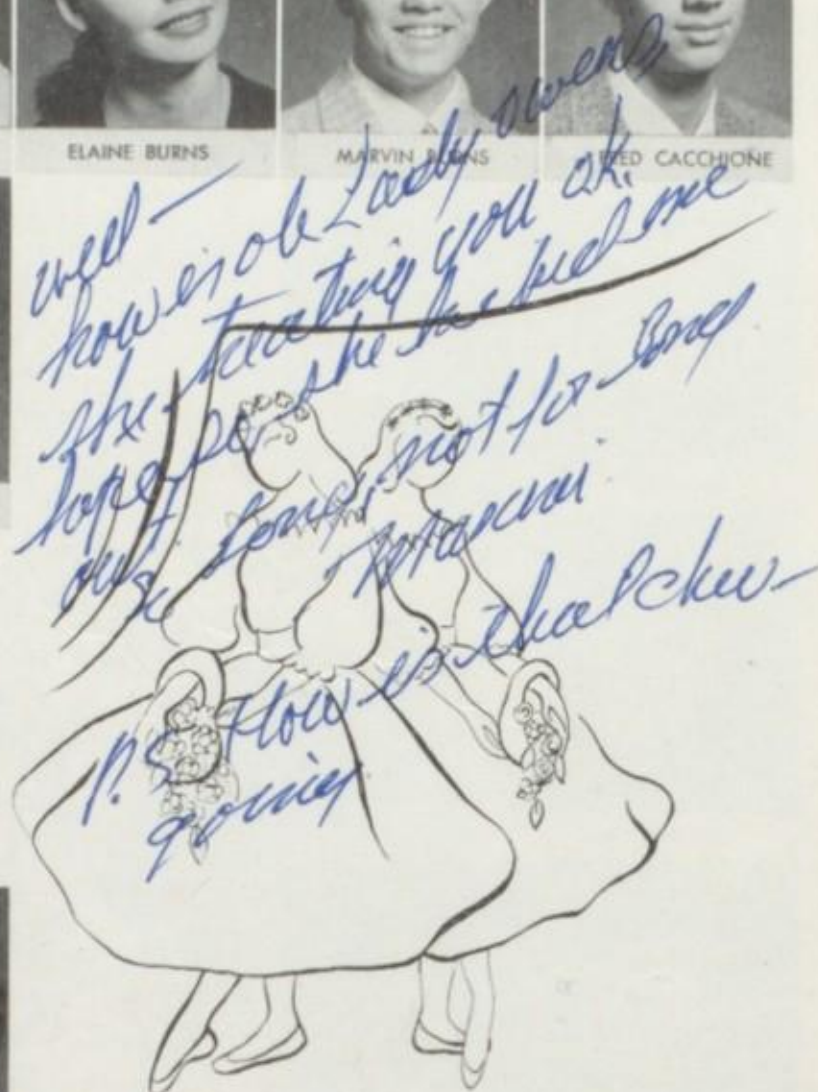 ELAINE BURNS
MARVIN BURNS
FRED CACCHIONE
well —
how is ole Lady owens
she treating you ok.
hope so she has had me
out
So long, not for long
P.S. How is that
going